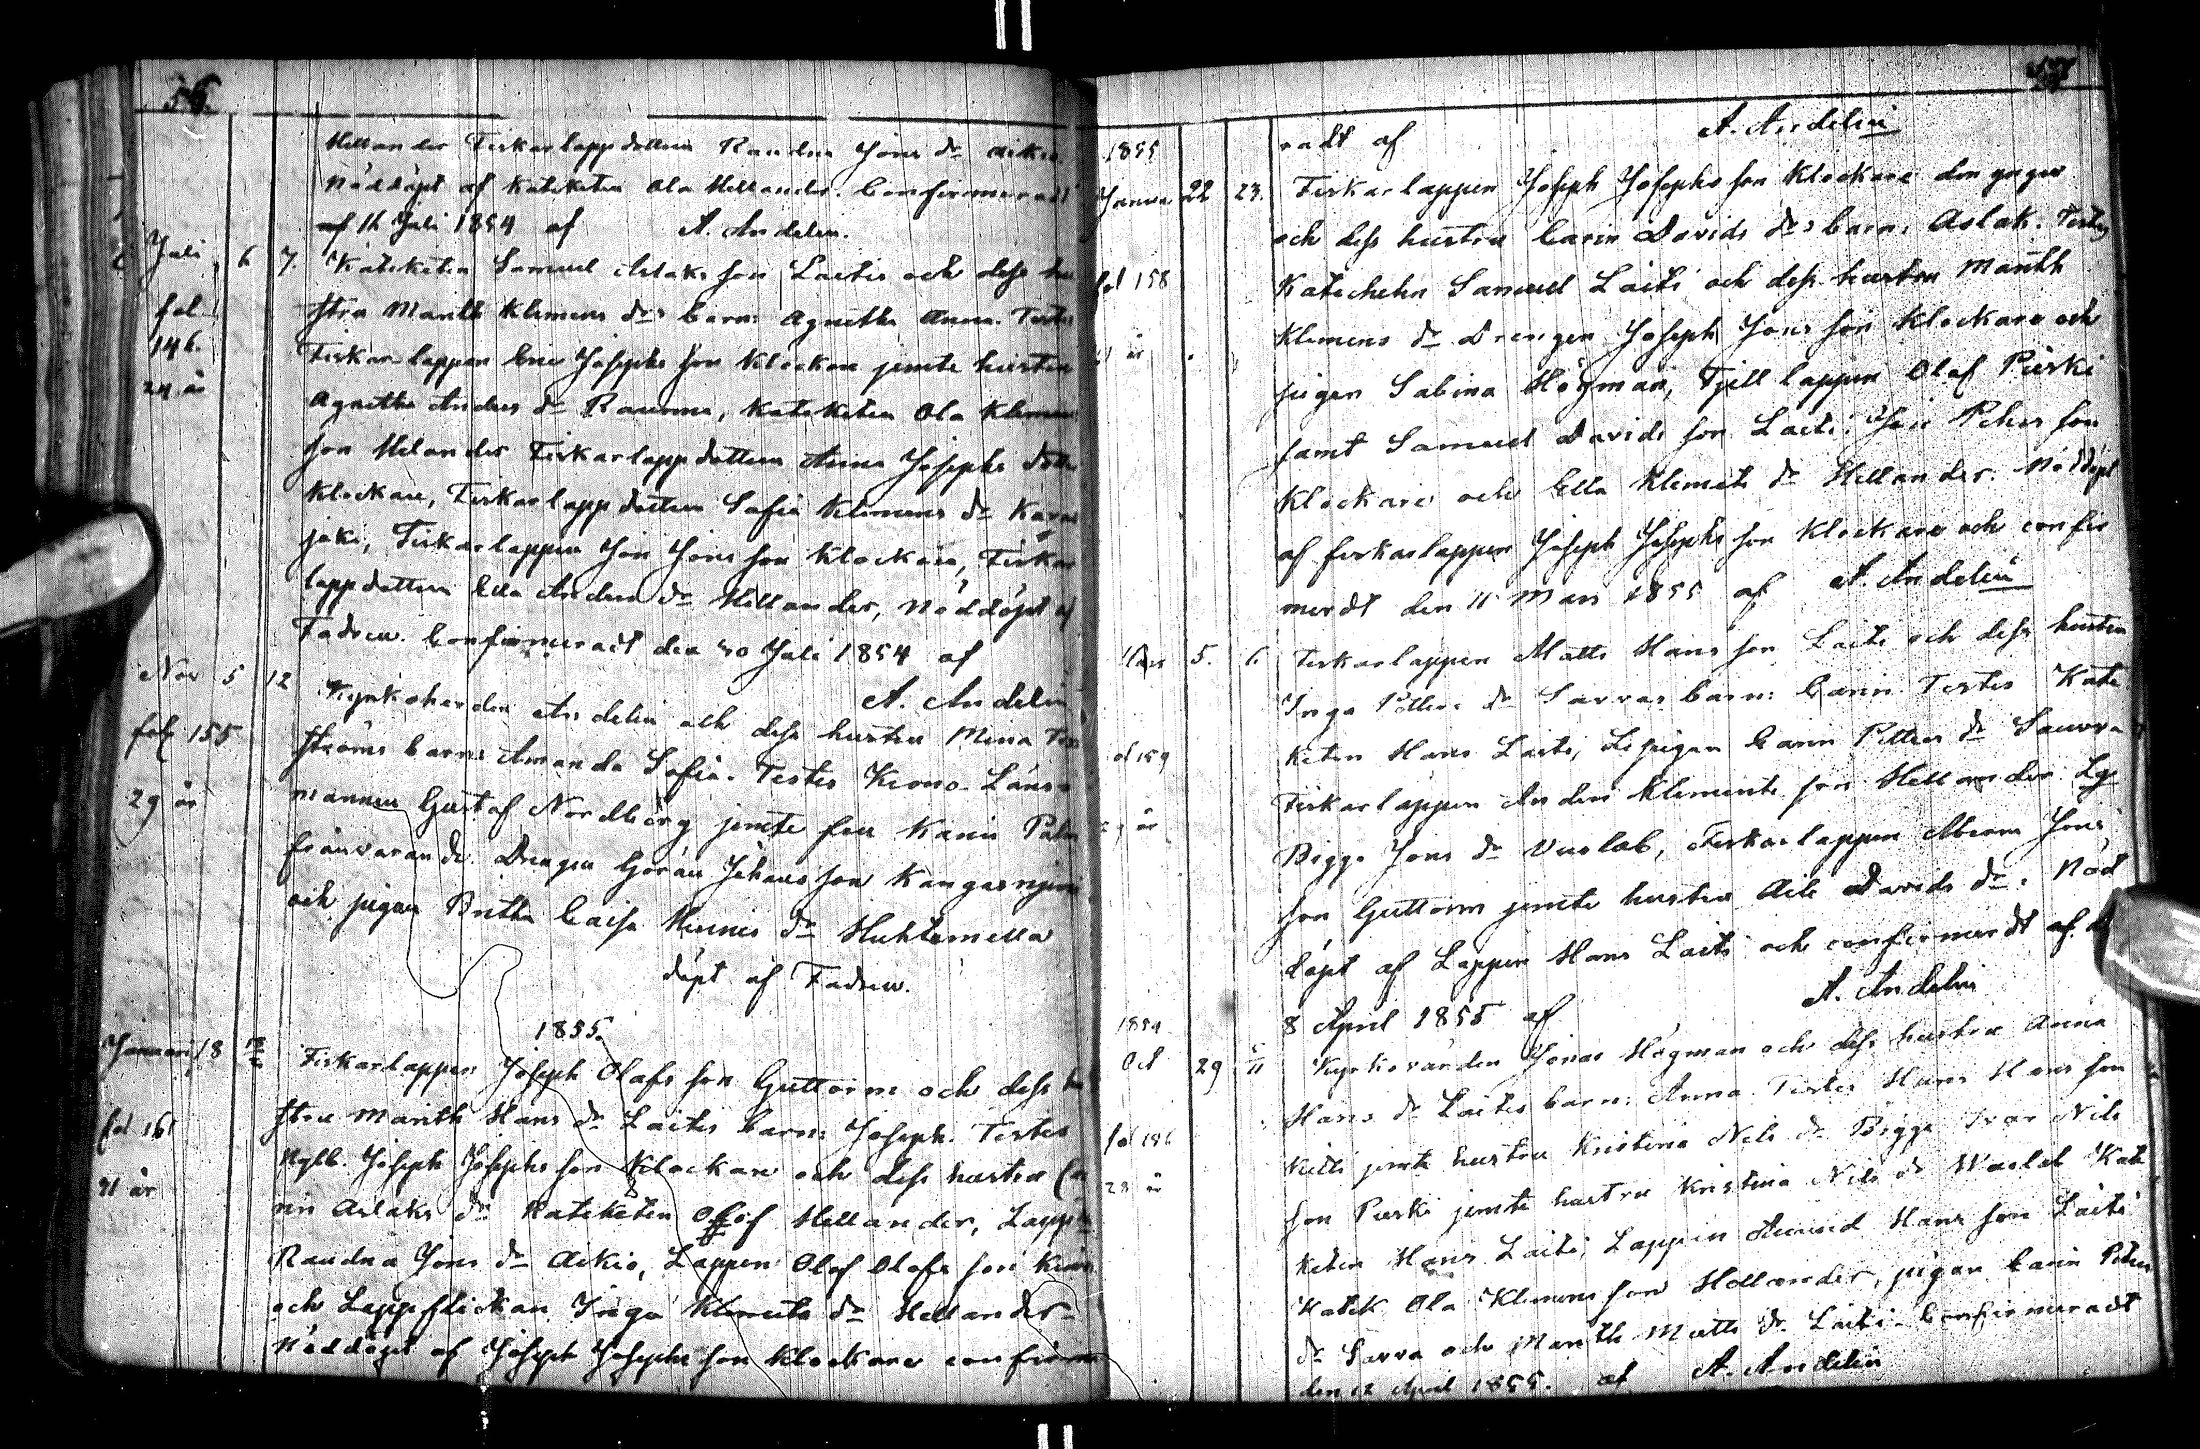 56.
Hellander Fiskarlappdottren Raudna Jons dr Aikio
Nöddöpt af Kateketen Ola Hellander. Confirmeradt
af 16 Juli 1854 af A. Andelin.
Juli 6 7. Kateketen Samuel Aslaks son Laitis och dess hu
fol. 146. stru Marith Klemens drs barn: Agnetha Anna. Testes
Fiskarlappen Eric Josephs son Klockare jemte hustru
24 år Agnetha Anders dr Rauma, Kateketen Ola Klemens
son Helander Fiskarlappdottren Anna Josephs dotter
Klockare, Fiskarlappdottren Sofia Klemens dr Karas
joki, Fiskarlappen Jon Jons son Klockare, Fiskar
lappdottren Ella Anders dr Hellander, Nöddöpt af
Fadren. Confirmeradt den 30 Juli 1854 af
A. Andelin
Nov 5 12 Kyrkoherden Andelin och dess hustru Mina
fol 155 ströms barn: Amanda Sofia. Testes Krono Läns-
29 år mannen Gustaf Nordberg jemte fru Karin
frånvarande. Drengen Göran Johans son Kangasniemi
och pigan Britha Caisa Hinnis dr Huhtamella
döpt af Fadren.
1855.
Januari 18 Fiskarlappen Joseph Olafs son Guttorm och dess hu
fol 161 stru Marith Hans dr Laitis barn: Joseph. Testes
Nyb. Joseph Josephs son Klockare och dess hustru Ca
31 år rin Aslaks dr Kateketen Olof Hellander, Lapp
Raudna Jons dr Aikio, Lappen Olof Olofs son
och Lappflickan Inga Klemets dr Hellander
Nöddöpt af Joseph Josephs son Klockare confirme
57
radt af A. Andelin
1855
Janua 22 23. Fiskarlappen Joseph Josephs son Klockare den yngre
och dess hustru Carin Davids drs barn: Aslak. Testes
fol 158 Katecheten Samuel Laiti och dess hustru Marith
Klemens dr Drengen Joseph Jons son Klockare och
år pigan Sabina Högman, Fjell lappen Olof Pieski
samt Samuel Davids son Laiti, Jon Peters son
Klockare och Ella Klemets dr Hellander. Nöddöpt
af fiskarlappen Joseph Josephs son Klockare och confir
merdt den 11 Mars 1855 af A. Andelin
Mars 5. 6. Fiskarlappen Matts Hans son Laiti och dess hustru
Inga Petters dr Sarvas barn: Carin Testes Kate
ol 159 keten Hans Laiti, Lappigan Carin Petters dr Sauvva
Fiskarlappen Anders Klements son Hellander
år Bigge Jons dr Vuolab, Fiskarlappen Abram Jons
son Guttorm jemte hustru Aile Davids dr. Nöd
döpt af Lappen Hans Laiti och confirmerdt af
8 April 1855 af A. Andelin
1854
Oct 29 Kyrkovärden Jonas Högman och dess hustru Anna
Hans dr Laitis barn: Anna Testes Hans Hans son
fol 186 Kitti jemte hustru Kristina Nils dr Bigge Ivar Nils
28 år son Pieski jemte hustru Kristina Nils dr Wuolab Kate
keten Hans Laiti, Lappen Amund Hans son Laiti
Katek Ola Klemens son Hellander, pigan Carin Peters
dr Sarva och Marith Matts dr Laiti. Confirmeradt
den 12 April 1855. af A. Andelin